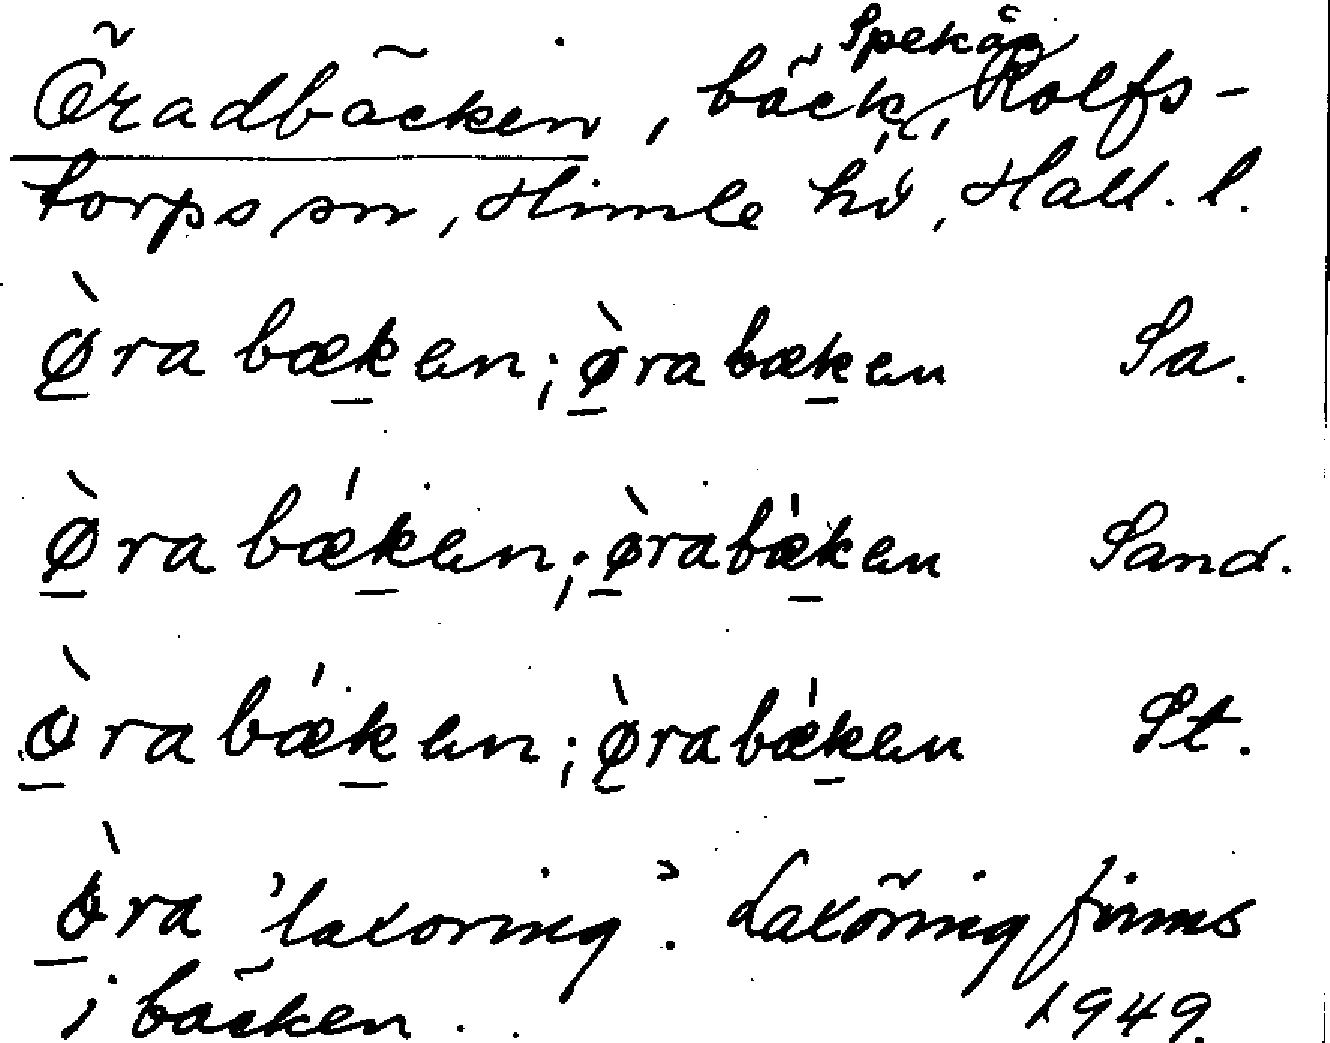 Spekån
Öradbäcken, bäck, Rolfs-
torps sn, Himle hd, Hall. l.
Ø̀ra bæken; ø̀rabæken Sa.
Ø̀ra bǽken; ø̀rabǽken Sand.
Ø̀ra bǽken; ø̀rabǽken St.
Ø̀ra 'laxöring'. Laxöring finns
i bäcken. 1949.